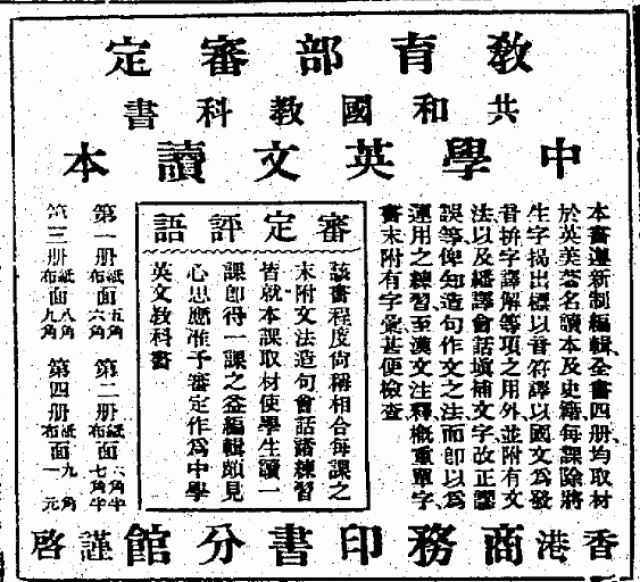 教育部審定
共和國教科書
中學英文讀本
本書遵新制編輯全書四册均取材
於英美著名讀本及史籍每課除將
生字揭出標以音符譯以國文爲發
音拚字譯解等項之用外並附有文
法以及繙譯會話塡補文字改正謬
誤等俾知造句作文之法而卽以爲
運用之練習至漢文注釋概重單字
書末附有字彙甚便檢查
審定評語
該書程度尙稱相合每課之
末附文法造句會話諸練習
皆就本課取材使學生讀一
課卽得一課之益編輯頗見
心思應准予審定作爲中學
英文教科書
第一册紙面五角布面六角
第二册紙面六角半布面七角半
第三册紙面八角布面九角
第四册紙面九角布面一元
香港商務印書分館謹啓